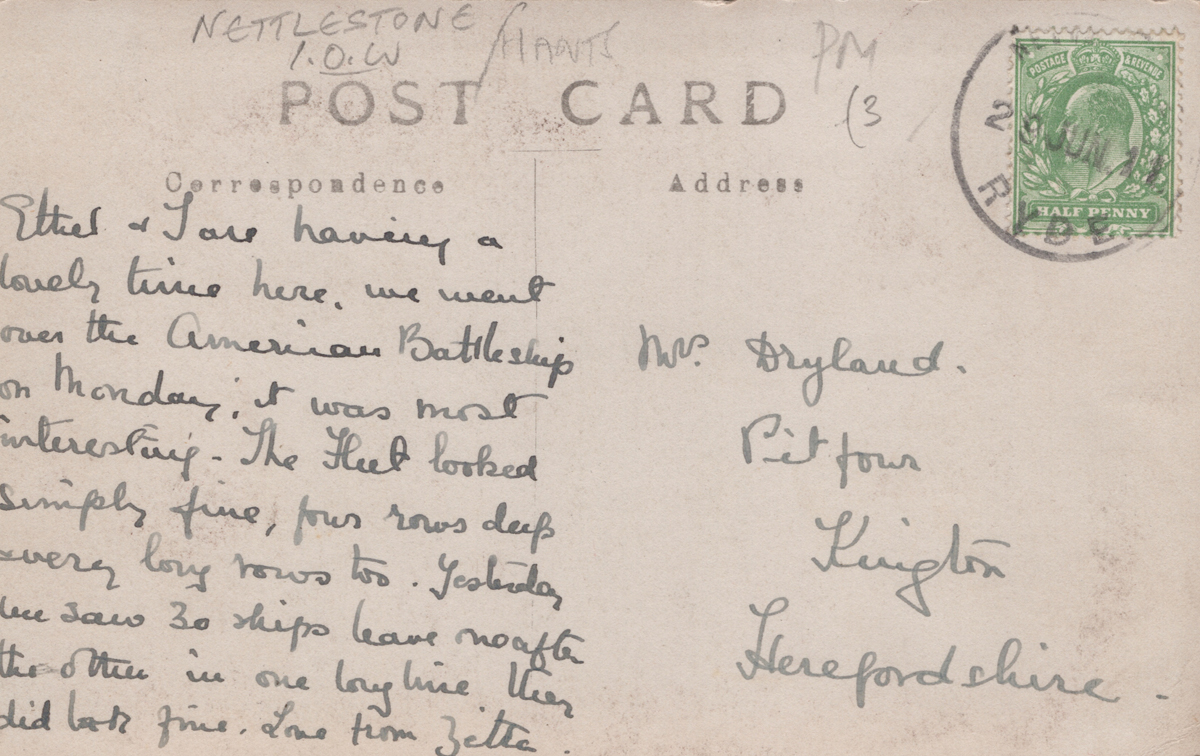 NETTLESTONE
I.O.W
/HANTS
PM
(3
POST CARD
POSTAGE & REVENUE
28 JUN 11
RYDE
HALF PENNY
Correspondence
Address
Ethel & I are having a
lovely time here. we went
over the American Battleship
on Monday, it was most
interesting - The Fleet looked
simply fine, four rows deep
& very long rows too. Yesterday
we saw 30 ships leave one after
the other in one long line they
did look fine. Love from Zetta.
Mrs. Dryland.
Pitfour
Kington
Herefordshire.